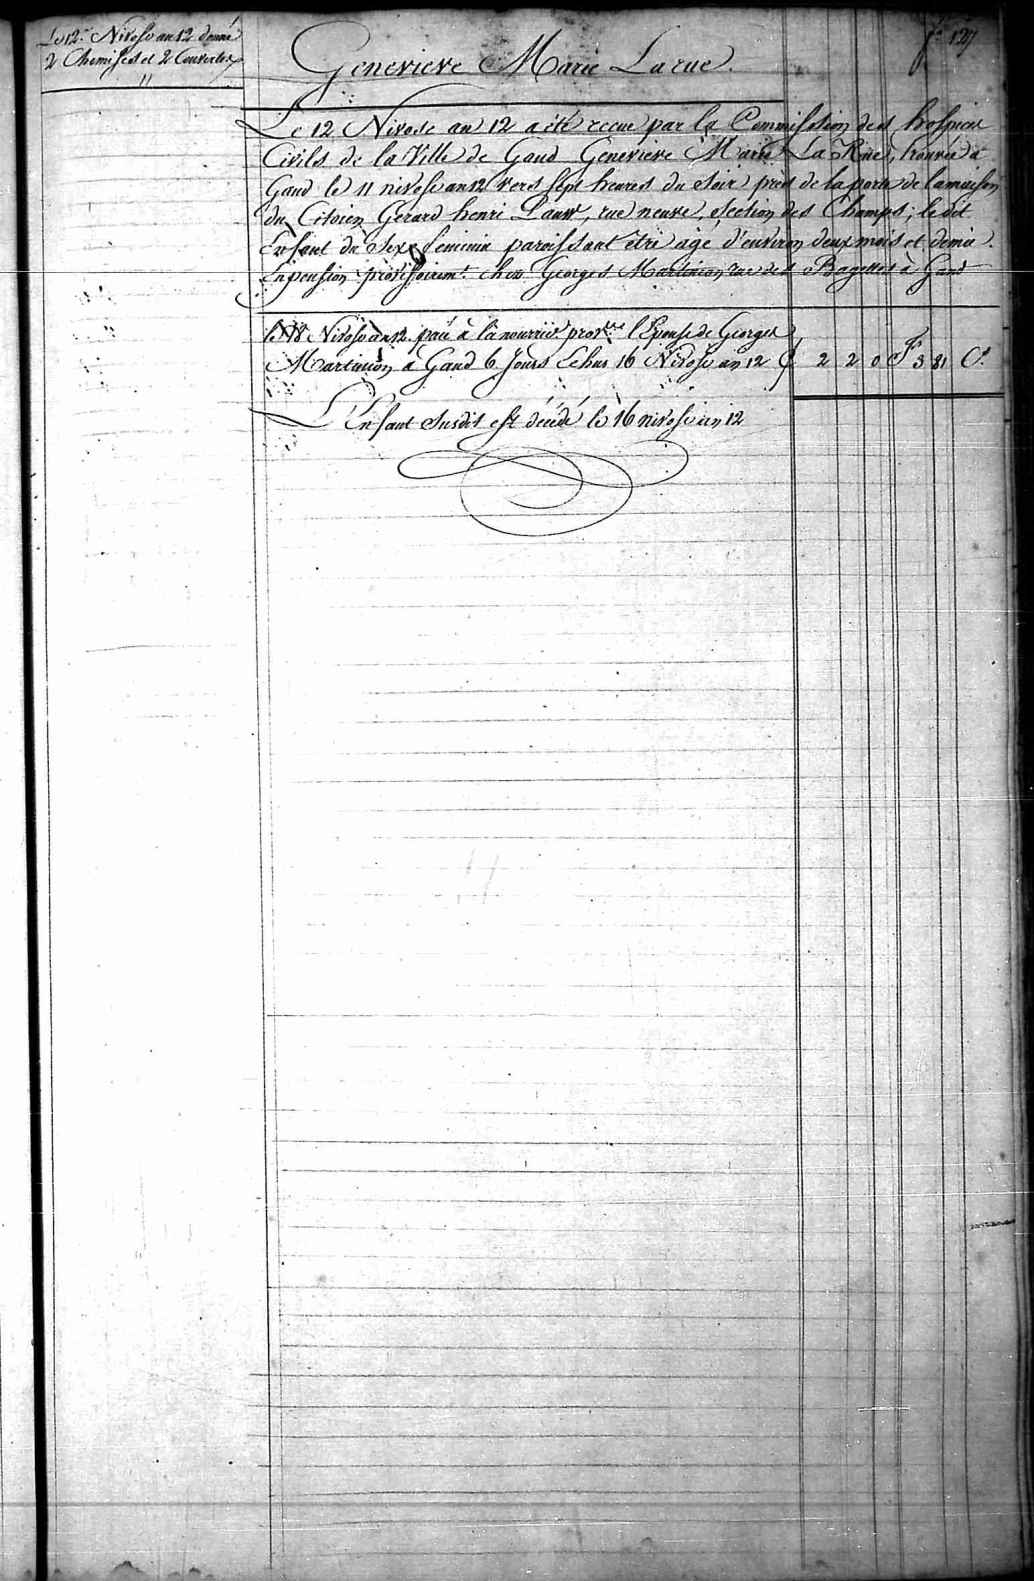 fo. 127
Le 12 Nivose an 12 donné
2 Chemises et 2 Couvertes
Genevieve Marie Larue.
Le 12 Nivose an 12 a été recue par la Commission des hospices
Civils de la Ville de Gand Genevieve Marie La Rue, trouvée à
Gand le 11 nivose an 12 vers sept heures du soir près de la porte de la maison
du Citoien Gerard henri Pauw, rue neuve, section des Champs; le dit
Enfant du Sexe feminin paroissant être agé d'environ deux mois et demie.
En pension provisoiremt. chez Georges Martincon rue des Bagettes à Gand
le 18 Nivose an 12 paié à la nourrice prov.re l'Epouse de Georges
Martincon à Gand 6 Jours Echus 16 Nivose an 12 2 2 0 F 3 81 C.
L'Enfant Susdit est décédé le 16 nivose an 12